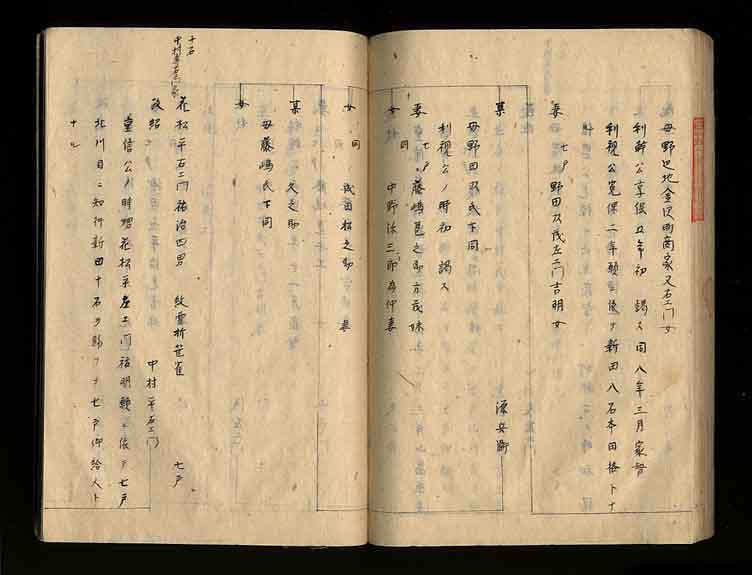 母野辺地金沢町商家又右エ門女
利幹公享保五年初 謁ス同八年三月家督
利視公寛保二年願之後夕新田八石本田格トナ
ル
妻 七戸 野田及茂左エ門吉明女
某 源安衛
母野田及氏下同
利視公ノ時初 謁ス
妻 七戸 藤嶋甚之助方茂妹
女 同 中野法三郎為仲妻
女 同 成田松之助 妻
某 久之助
母藤嶋氏下同
女
十石
中村平右エ門家
花松平右エ門祐治四男 紋雲折笹雀 七戸
政紹 中村平右エ門
重信公ノ時増花松平左エ門祐明願ニ依テ七戸
北川目ニ知行新田十石ヲ賜フテ七戸御給人ト
ナル